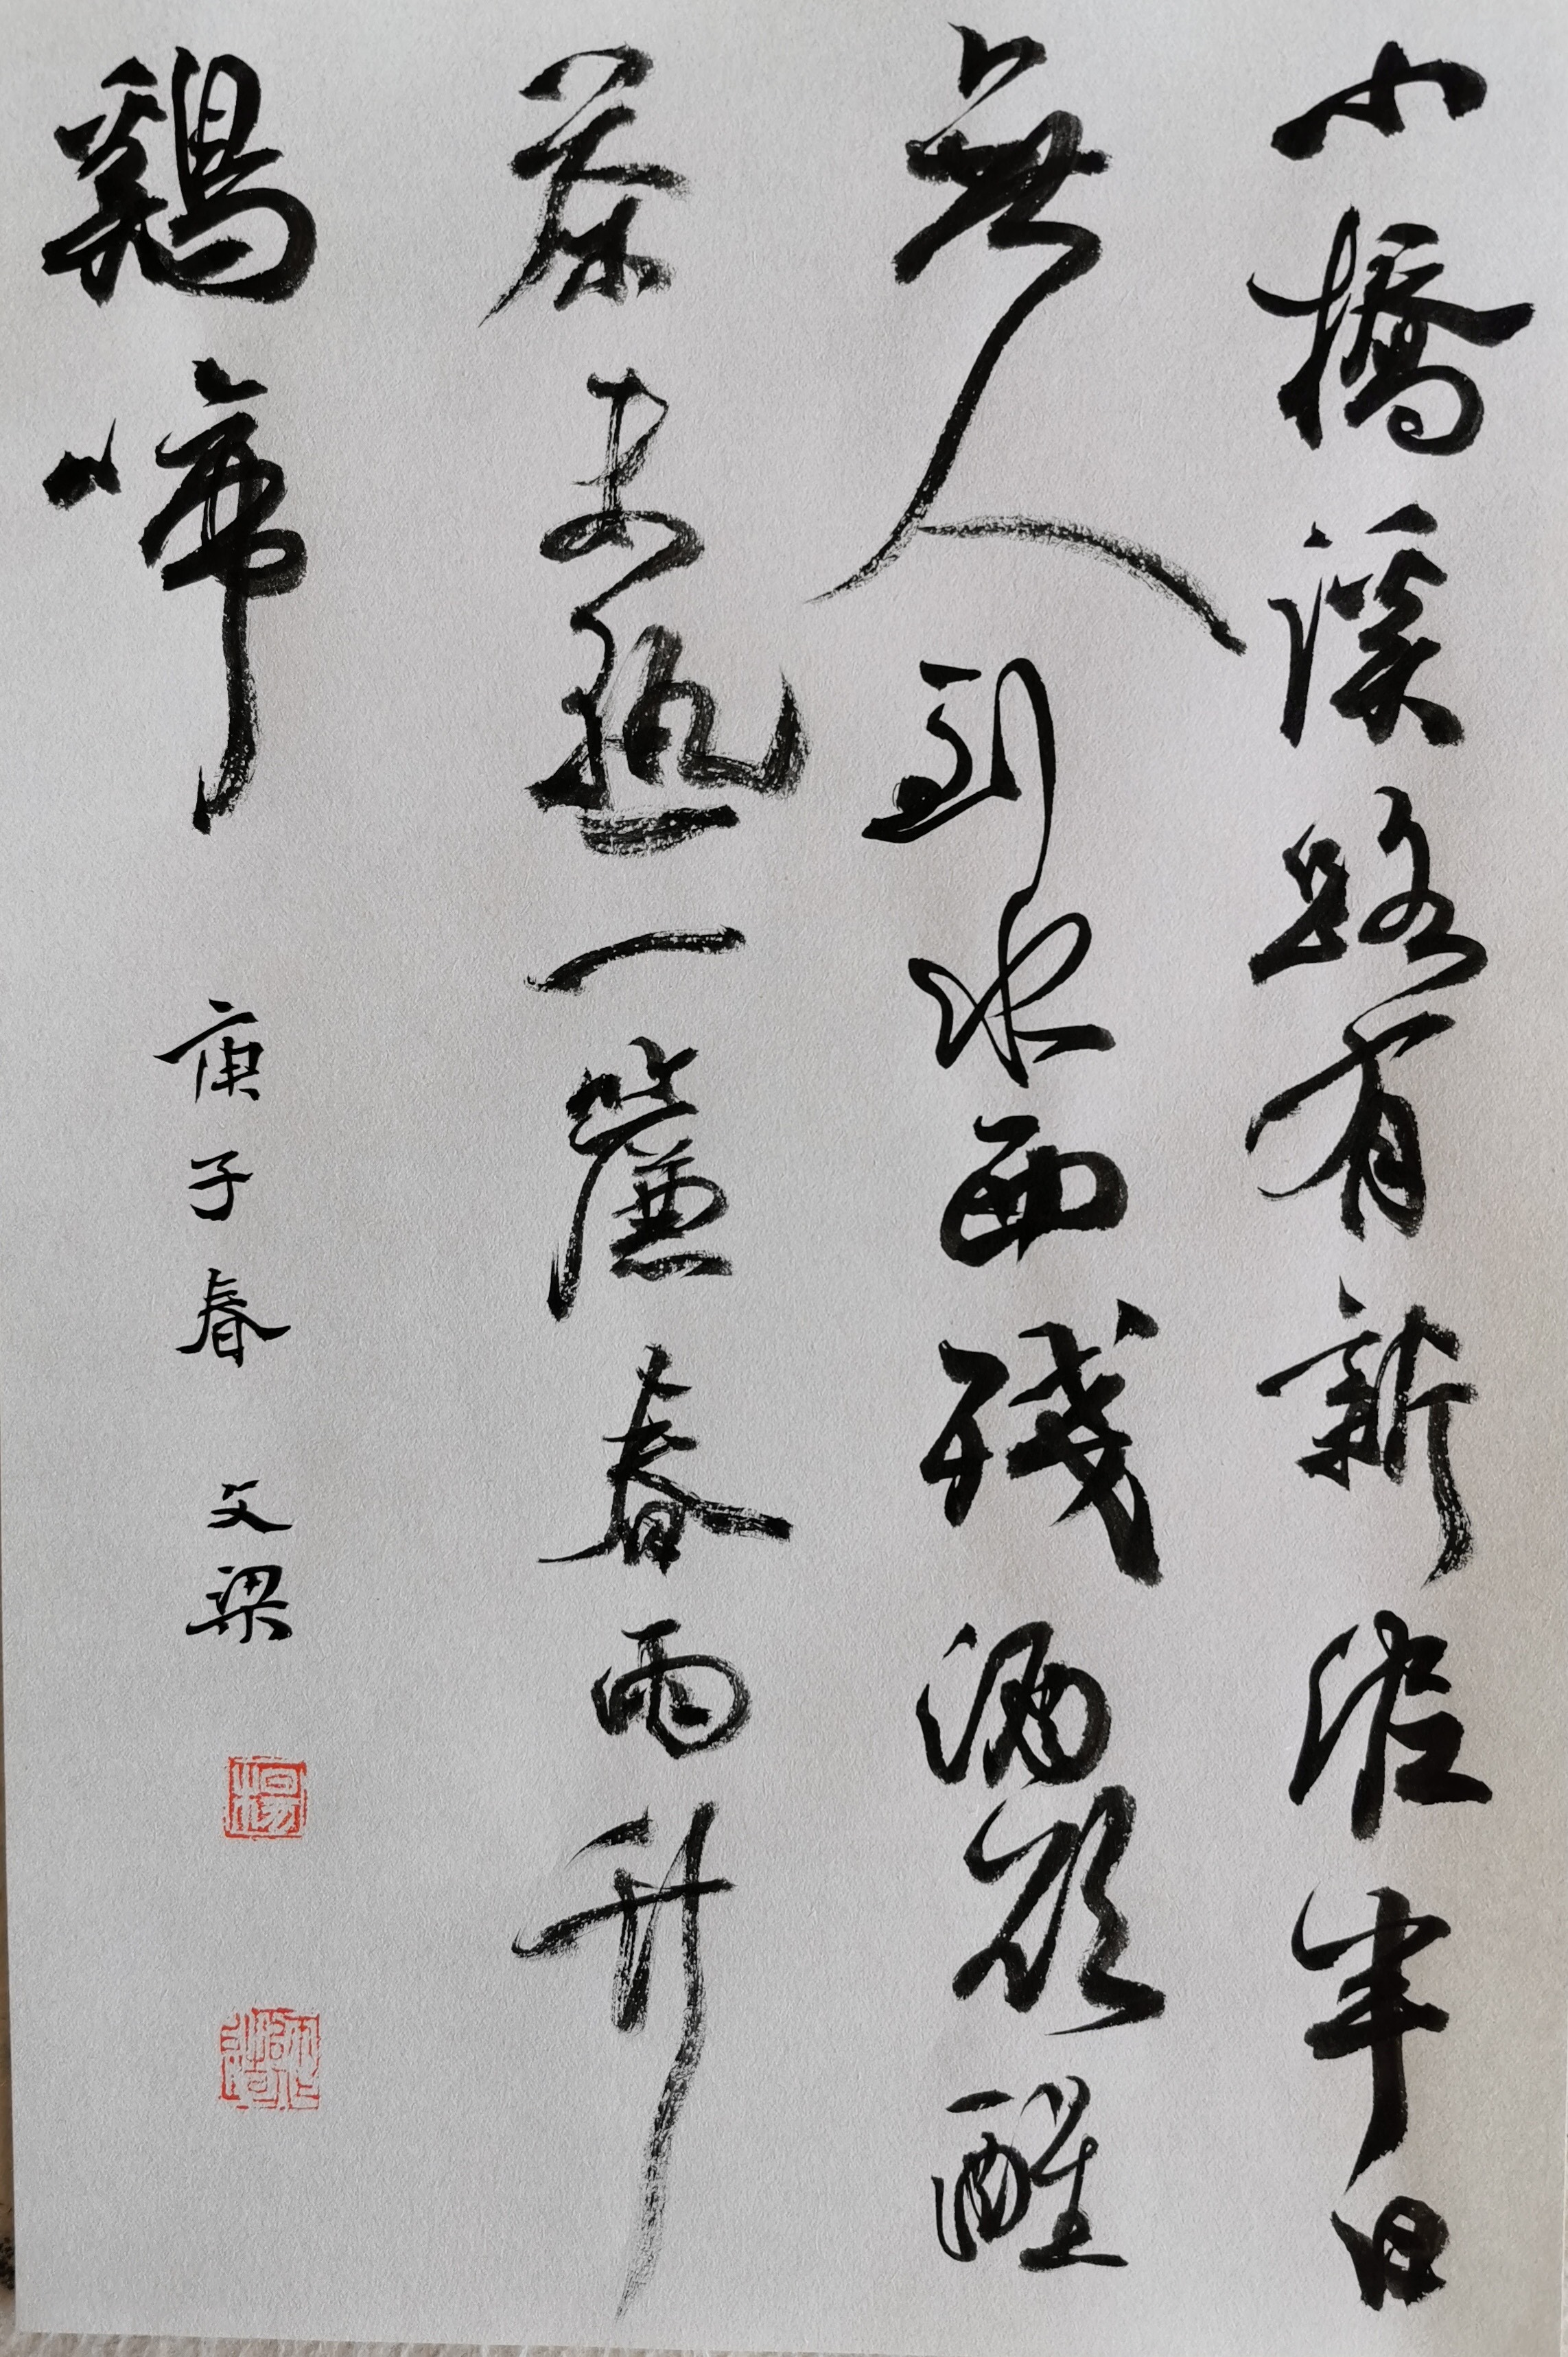 小橋溪路有新泥半日
無人到水西殘酒欲醒
茶未熟一簾春雨竹
鷄啼 庚子春 文梁
楊